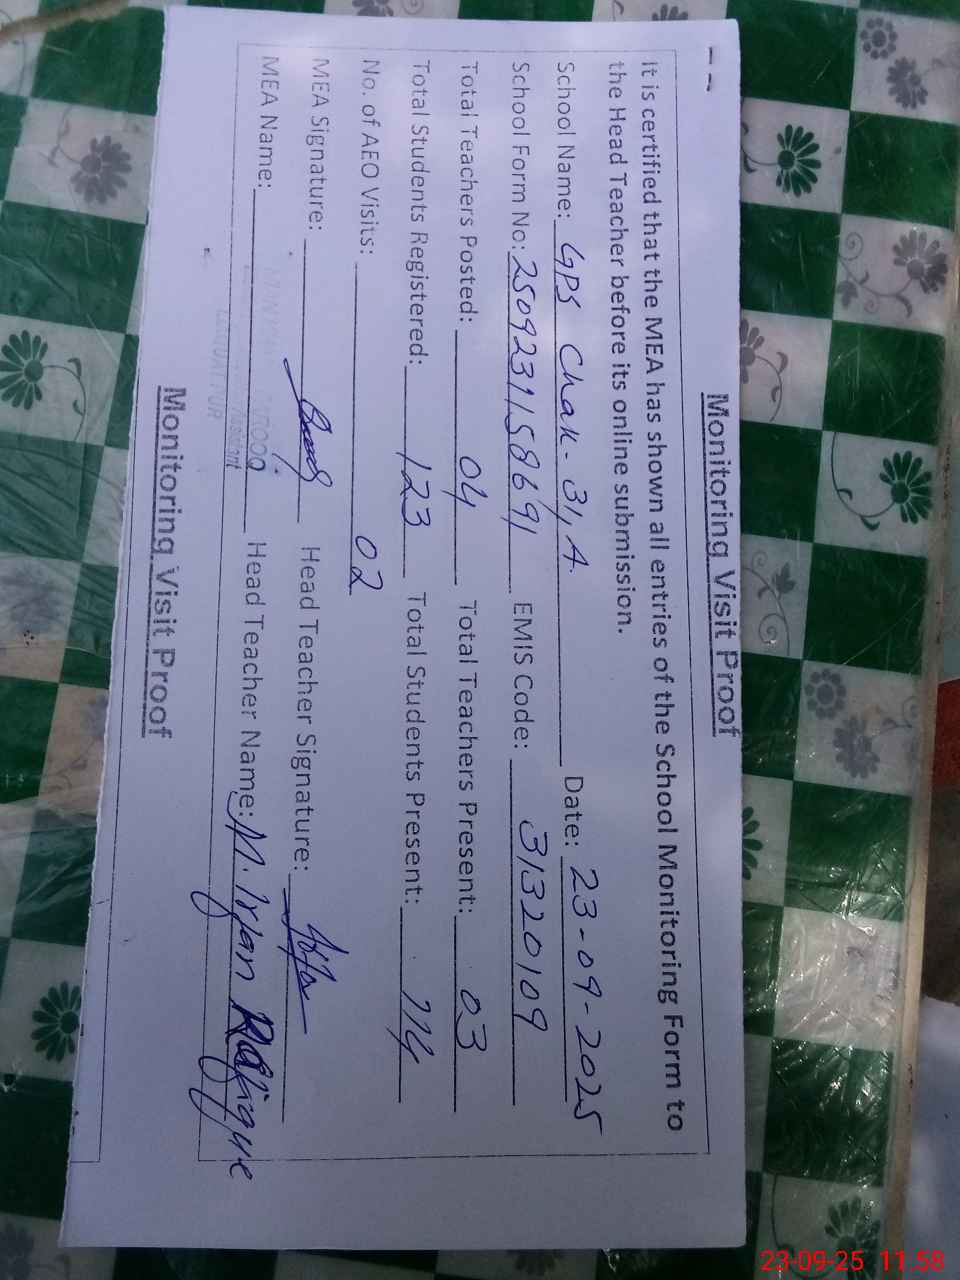 Monitoring Visit Proof
It is certified that the MEA has shown all entries of the School Monitoring Form to
the Head Teacher before its online submission.
School Name: GPS Chak-31,A Date: 23-09-2025
School Form No: 250923158691 EMIS Code: 31320109
Total Teachers Posted: 04 Total Teachers Present: 03
Total Students Registered: 123 Total Students Present: 114
No. of AEO Visits: 02
MEA Signature: Head Teacher Signature:
MEA Name: Head Teacher Name: M. Irfan Rafique
Monitoring Visit Proof
23-09-25 11:58